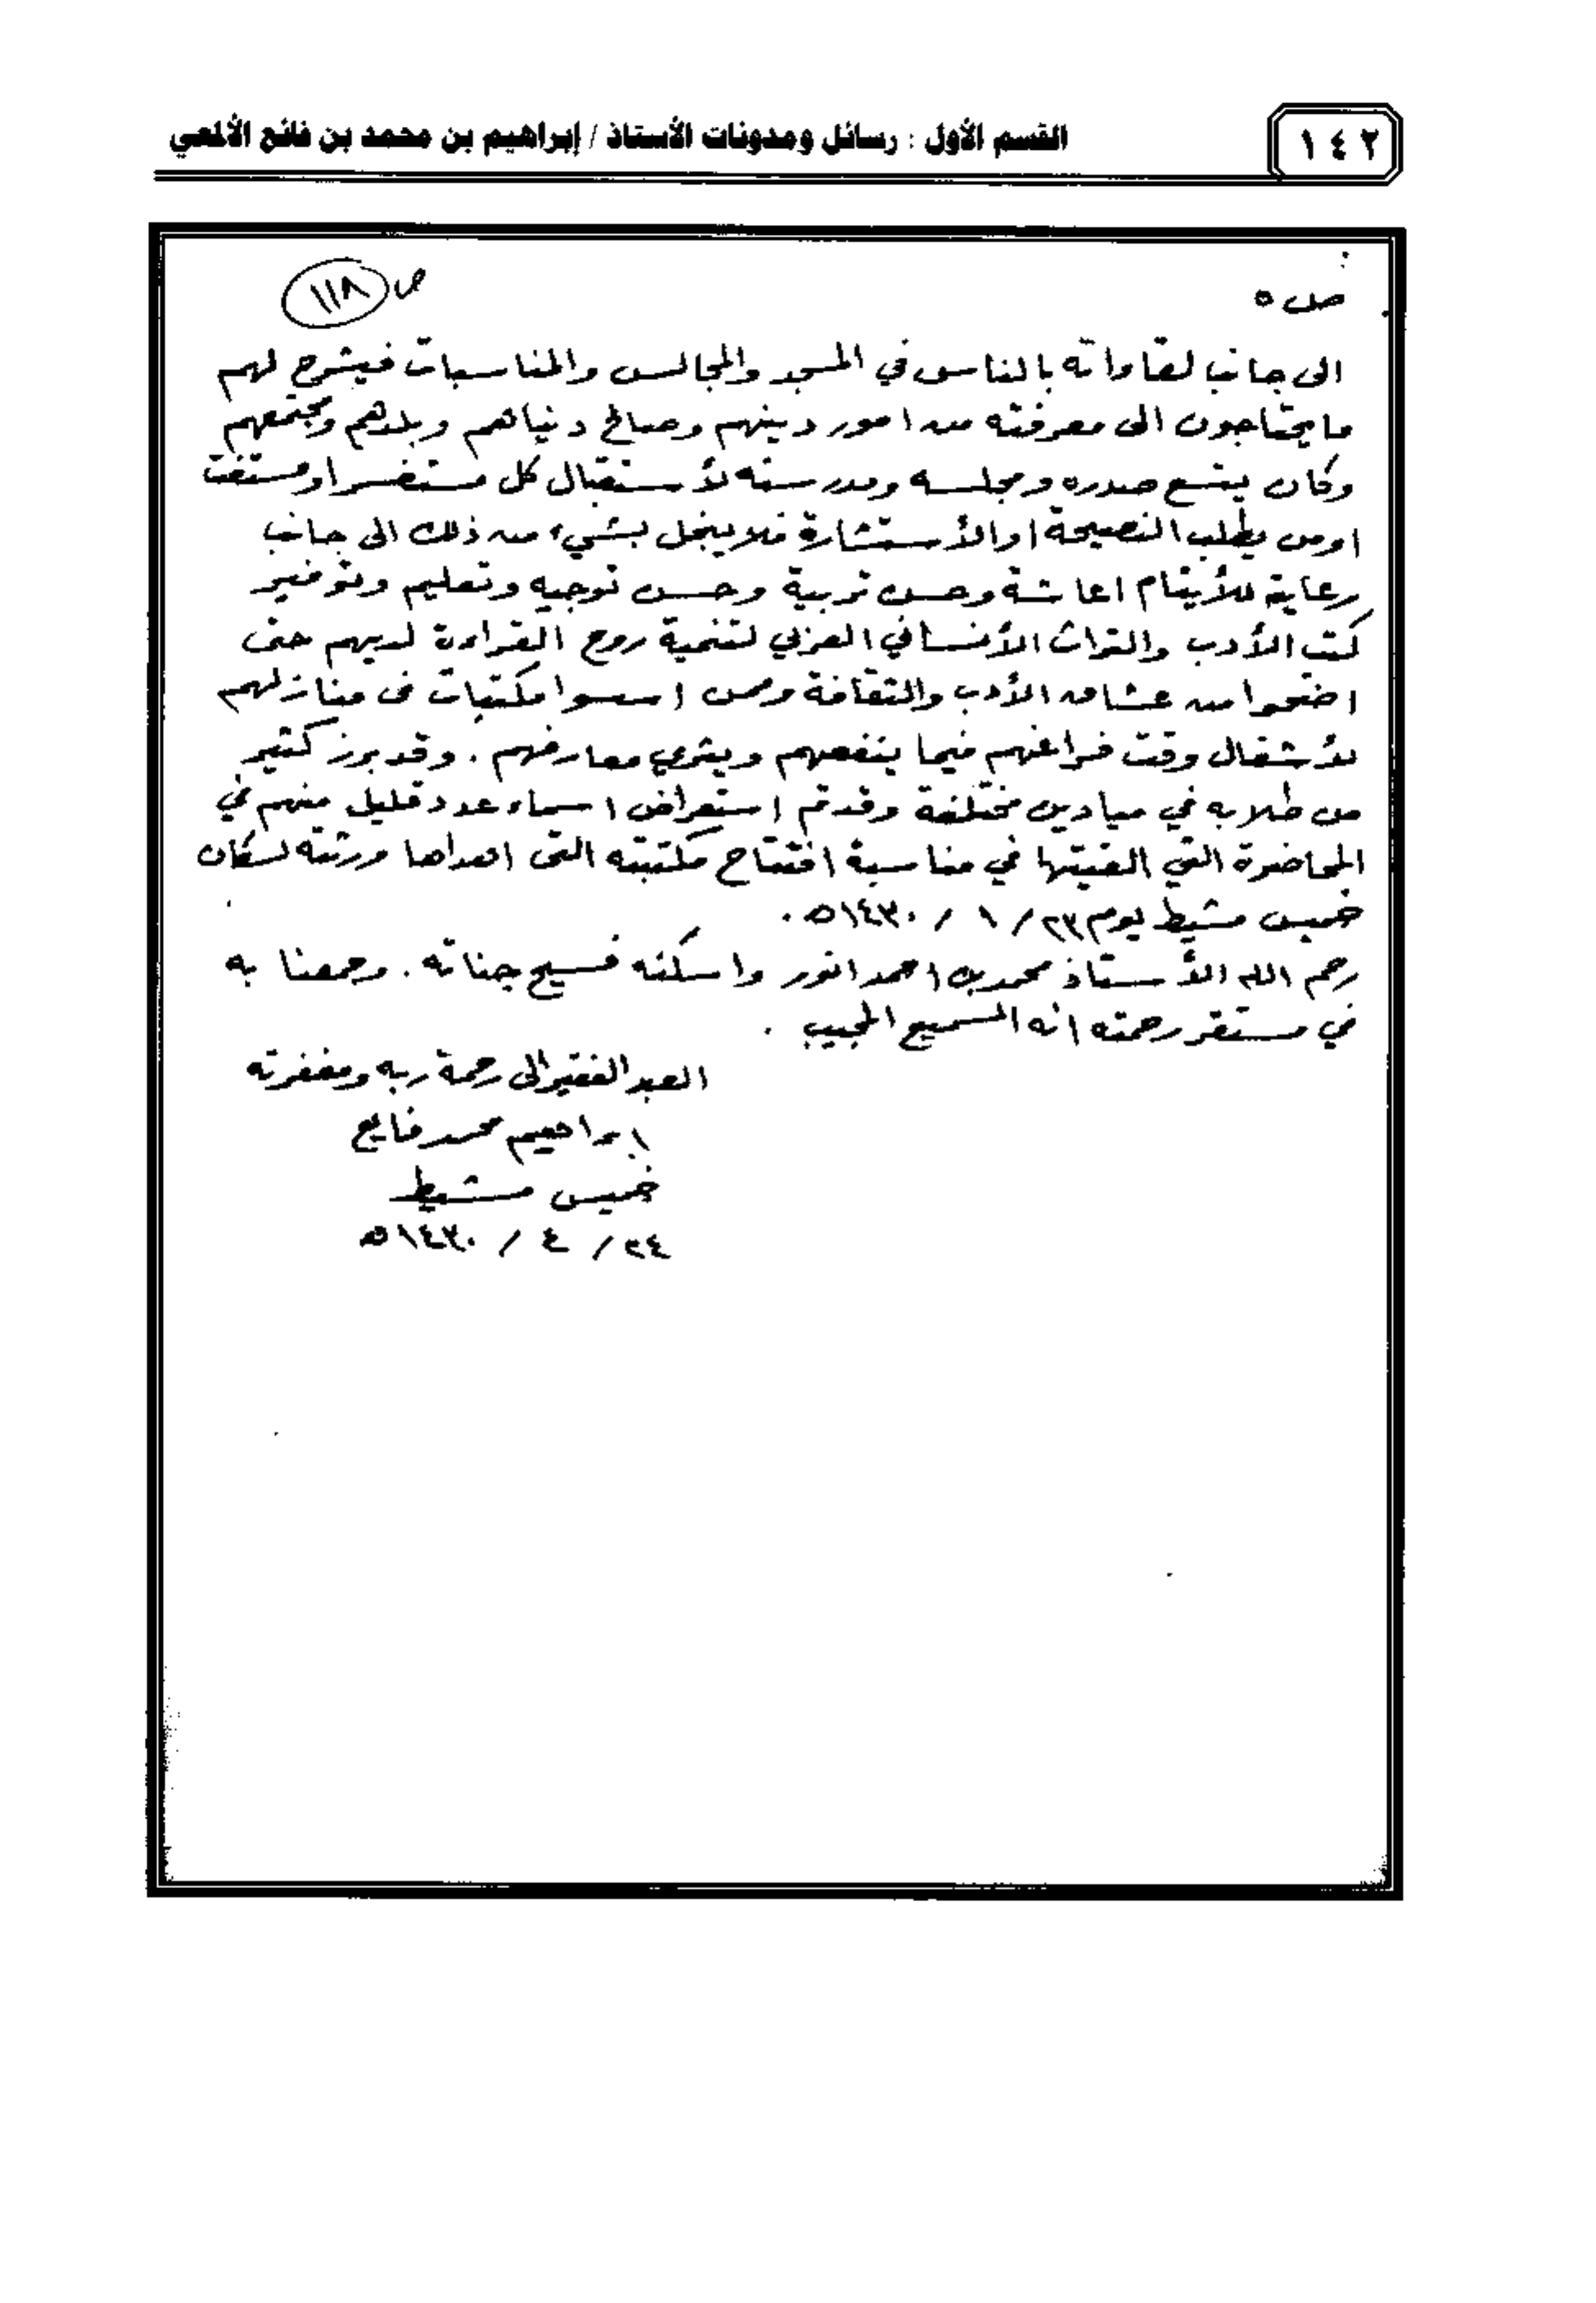 ١٤٢
القسم الأول : رسائل ومدونات الأستاذ / إبراهيم بن محمد بن فائع الألمعي
ص ٥
ص ١١٨
الى جانب لقاءاته بالناس في المسجد والمجالس والمناسبات فيشرح لهم
ما يحتاجون الى معرفته من امور دينهم وصالح دنياهم وبلدهم ومجتمعهم
وكان يتسع صدره ومجلسه ومدرسته لأستقبال كل مستفسر او مستفت
اومن يطلب النصيحة او الأستشارة فلا يبخل بشيء من ذلك الى جانب
رعاية للأيتام اعاشة وحسن تربية وحسن توجيه وتعليم وتوفير
كتب الأدب والتراث الأنساني العربي لتنمية روح القراءة لديهم حتى
اضحوا من عشاق الأدب والثقافة وممن اسسوا مكتبات في منازلهم
لأشغال وقت فراغهم فيما ينفعهم ويثري معارفهم . وقد برز كثير
من طلابه في ميادين مختلفة وقد تم استعراض اسماء عدد قليل منهم في
المحاضرة التي القيتها في مناسبة افتتاح مكتبته التى اهداها ورثته لسكان
خميس مشيط يوم ٢٣ / ١ / ١٤٣٠ه .
رحم الله الأستاذ محمد بن احمد انور واسكنه فسيح جناته . وجمعنا به
في مستقر رحمته انه السميع المجيب .
العبد الفقير الى رحمة ربه ومغفرته
ابراهيم محمد فايع
خميس مشيط
٢٤ / ٤ / ١٤٣٠ه